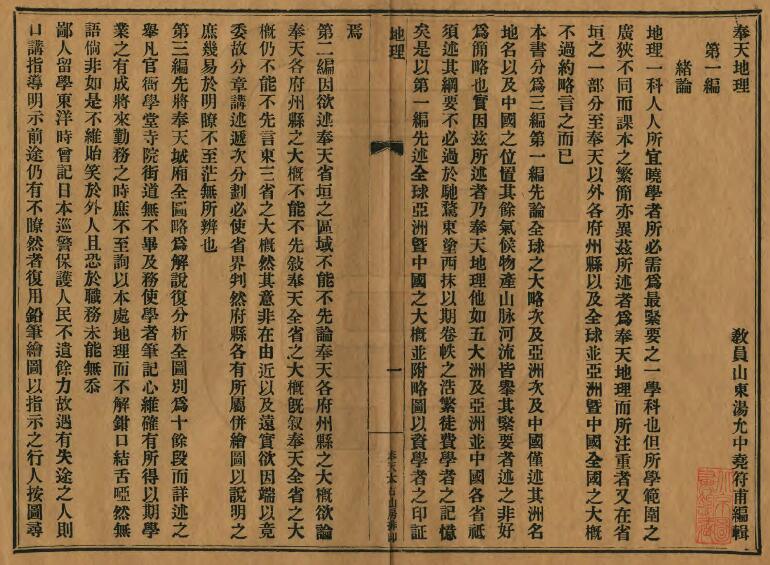 奉天地理
第一編　　教員山東湯允中堯符甫編輯
緒論
地理一科人人所宜曉學者所必需爲最緊要之一學科也但所學範圍之
廣狹不同而課本之繁簡亦異茲所述者爲奉天地理而所注重者又在省
垣之一部分至奉天以外各府州縣以及全球並亞洲曁中國全國之大概
不過約略言之而已
本書分爲三編第一編先論全球之大略次及亞洲次及中國僅述其洲名
地名以及中國之位置其餘氣候物產山脉河流皆舉其緊要者述之非好
爲簡略也實因茲所述者乃奉天地理他如五大洲及亞洲並中國各省祗
須述其綱要不必過於馳騖東塗西抹以期卷帙之浩繁徒費學者之記憶
矣是以第一編先述全球亞洲曁中國之大概並附略圖以資學者之印証
地理
一
焉
第二編因欲述奉天省垣之區域不能不先論奉天各府州縣之大概欲論
奉天各府州縣之大概不能不先敍奉天全省之大概旣叙奉天全省之大
概仍不能不先言東三省之大概然其意非在由近以及遠實欲因端以竟
委故分章講述遞次分劃必使省界判然府縣各有所屬併繪圖以說明之
庶幾易於明瞭不至茫無所辨也
第三編先將奉天城廂全圖略爲解說復分析全圖別爲十餘段而詳述之
舉凡官衙學堂寺院街道無不畢及務使學者筆記心維確有所得以期學
業之有成將來勤務之時庶不至詢以本處地理而不解鉗口結舌啞然無
語倘非如是不維貽笑於外人且恐於職務未能無忝
鄙人留學東洋時曾記日本巡警保護人民不遺餘力故遇有失途之人則
口講指導明示前途仍有不瞭然者復用鉛筆繪圖以指示之行人按圖尋